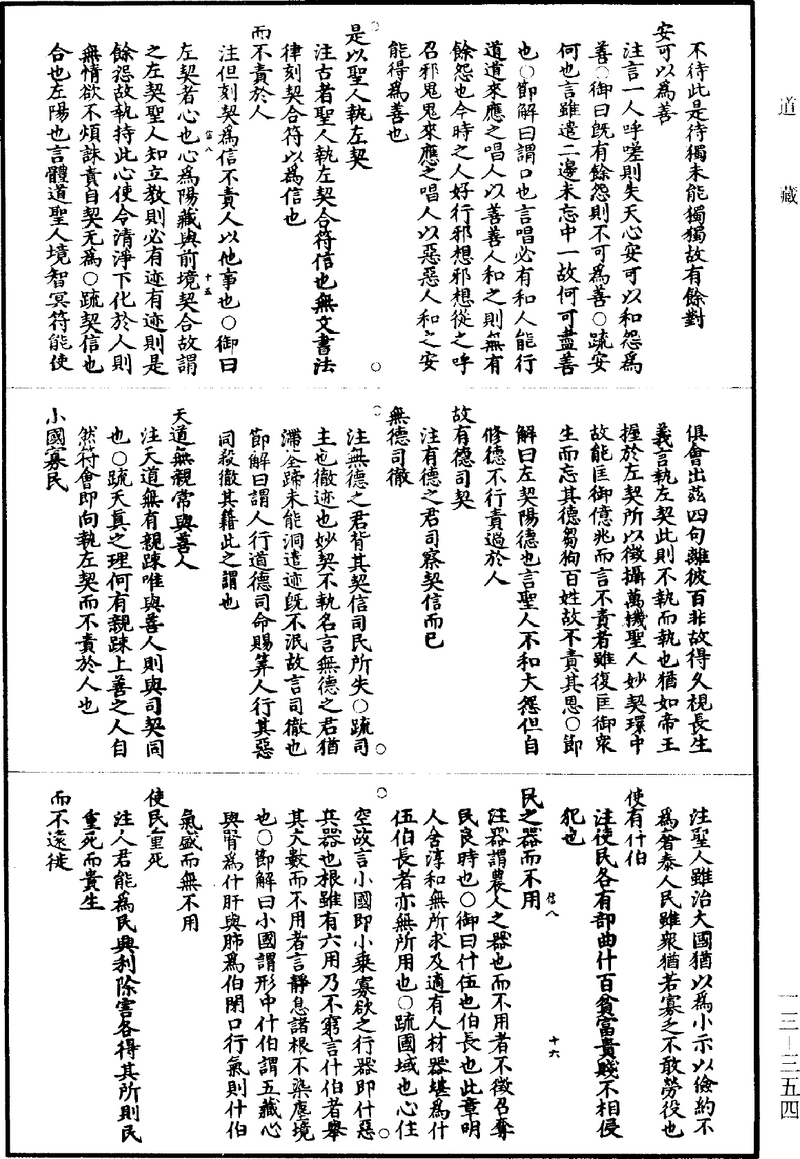 道藏
不待此是待獨未能獨獨故有餘對
安可以為善
注言一人呼嗟則失天心安可以和怨為
善○御曰既有餘怨則不可為善○疏安
何也言雖遣二邊未忘中一故何可盡善
也○節解曰謂口也言唱必有和人能行
道道來應之唱人以善善人和之則無有
餘怨也今時之人好行邪想邪想從之呼
召邪鬼鬼來應之唱人以惡惡人和之安
能得為善也
是以聖人執左契
注古者聖人執左契合符信也無文書法
律刻契合符以為信也
而不責於人
注但刻契為信不責人以他事也○御曰
左契者心也心為陽藏與前境契合故謂
之左契聖人知立教則必有迹有迹則是
餘怨故執持此心使令清淨下化於人則
無情欲不煩誅責自契无為○疏契信也
合也左陽也言體道聖人境智冥符能使
信八
十五
俱會出茲四句離彼百非故得久視長生
義言執左契此則不執而執也猶如帝王
握於左契所以徵攝萬機聖人妙契環中
故能匡御億兆而言不責者雖復匡御衆
生而忘其德芻狗百姓故不責其恩○節
解曰左契陽德也言聖人不和大怨但自
修德不行責過於人
故有德司契
注有德之君司察契信而已
無德司徹
注無德之君背其契信司民所失○疏司
主也徹迹也妙契不執名言無德之君猶
滯筌蹄未能洞遣迹既不泯故言司徹也
節解曰謂人行道德司命賜筭人行其惡
司殺徹其籍此之謂也
天道無親常與善人
注天道無有親踈唯與善人則與司契同
也○疏天真之理何有親踈上善之人自
然符會即向執左契而不責於人也
小國寡民
注聖人雖治大國猶以為小示以儉約不
為奢泰人民雖衆猶若寡乏不敢勞役也
使有什伯
注使民各有部曲什百貧富貴賤不相侵
犯也
民之器而不用
注器謂農人之器也而不用者不徵召奪
民良時也○御曰什伍也伯長也此章明
人含淳和無所求及適有人材器堪為什
伍伯長者亦無所用也○疏國域也心住
空故言小國即小乘寡欲之行器即什惡
兵器也根雖有六用乃不窮言什伯者舉
其大數而不用者言靜息諸根不染塵境
也○節解曰小國謂形中什伯謂五藏心
與腎為什肝與肺為伯閉口行氣則什伯
氣盛而無不用
使民重死
注人君能為民興利除害各得其所則民
重死而貴生
而不遠徙
信八
十六
一三—三五四